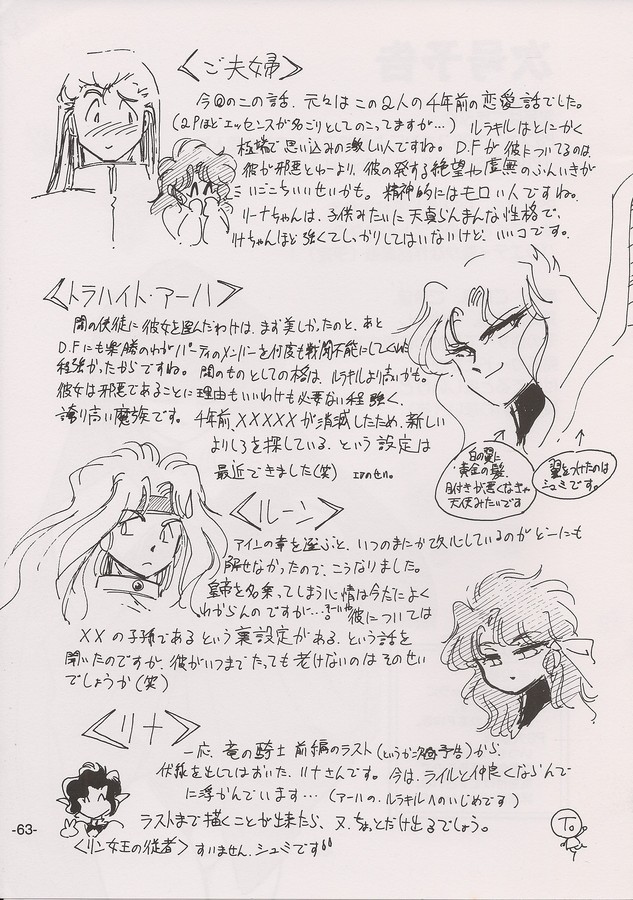 <ご夫婦>
今回のこの話、元々はこの2人の4年前の恋愛話でした。
(2Pほどエッセンスが名ごりとしてのこってますが…) ルラキルはとにかく
極端で思い込みの激しい人ですね。D.Fが彼についてるのは、
彼が邪悪とゆーより、彼の発する絶望や虚無のふんいきが
いごこちいいせいかも。精神的にはモロい人ですね。
リーナちゃんは、子供みたいに天真らんまんな性格で、
リナちゃんほど強くてしっかりしてはいないけど、いいコです。
<トラハイト・アーハ>
闇の使徒に彼女を選んだわけは、まず美しかったのと、あと
D.Fにも楽勝のわがパーティのメンバーを何度も戦闘不能にしてくれた
経強かったからですね。闇のものとしての格は、ルラキルより高いかも。
彼女は邪悪であることに理由もいいわけも必要ない程強く、
誇り高い魔族です。4年前、XXXXXが消滅したため、新しい
よりしろを探している、という設定は
最近できました(笑)
白の翼に
黄金の髪、
目付きが悪くなきゃ
天使みたいです
翼をつけたのは
シュミです。
<ルーン>
アインの章を遊ぶと、いつのまにか改心しているのがどーにも
解せなかったので、こうなりました。
皇帝を名乗ってしまう心情は今だによく
わからんのですが…。彼については
XXの子孫であるという裏設定がある、という話を
聞いたのですが、彼がいつまでたっても老けないのはそのせい
でしょうか(笑)
<リナ>
一応、竜の騎士 前編のラスト(というか次回予告)から、
伏線をとしてはおいた、リナさんです。今は、ライルと仲良くならんで
に浮かんでいます…(アーハの、ルラキルへのいじめです)
ラストまで描くことが出来たら、又、ちょっとだけ出るでしょう。
<リン女王の従者> すいません、シュミです
-63-